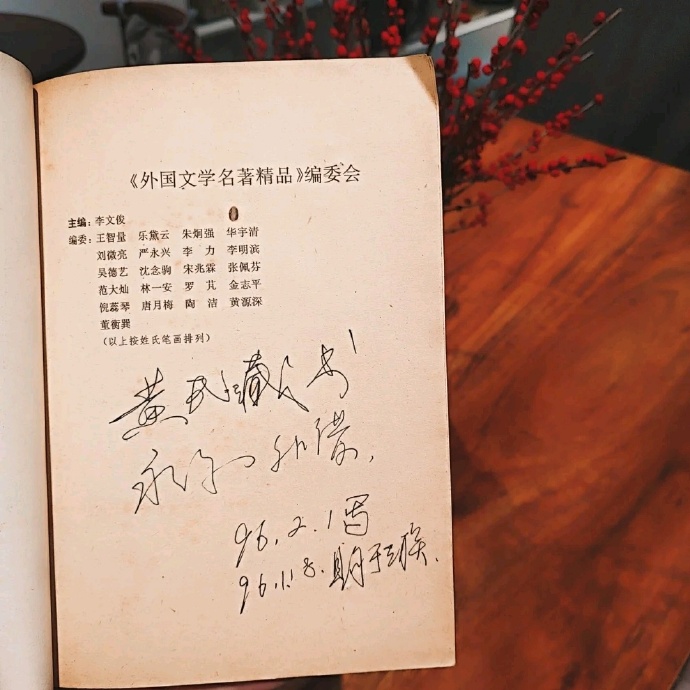 《外国文学名著精品》编委会
主编：李文俊
编委：王智量 乐黛云 朱炯强 华宇清
刘微亮 严永兴 李 力 李明滨
吴德艺 沈念驹 宋兆霖 张佩芬
范大灿 林一安 罗 芃 金志平
倪蕊琴 唐月梅 陶 洁 黄源深
董衡巽
（以上按姓氏笔画排列）
黄氏藏书
永不外借，
96.2.1
96.1.8.购于